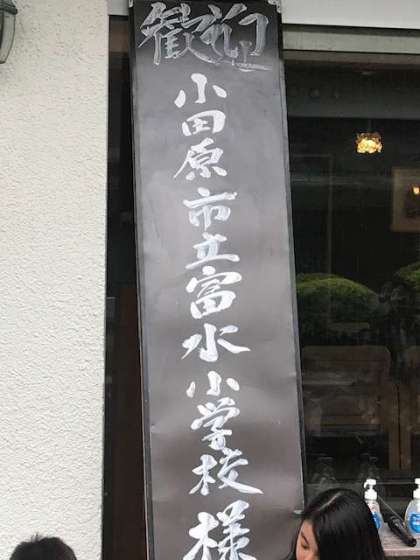 歓迎
小田原市立富水小学校様